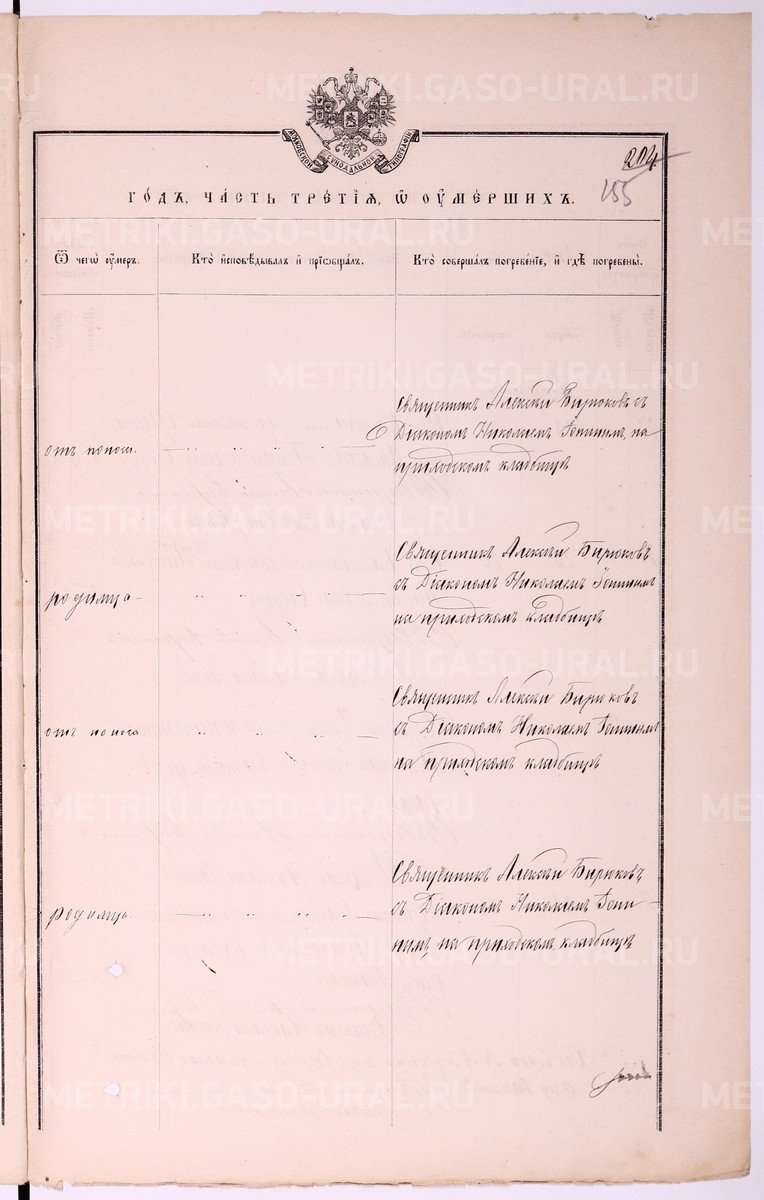 METRIKI.GASO-URAL.RU
МОСКОВСКОЙ СѴНОДАЛЬНОЙ ТИПОГРАФІИ
204
155
го́дъ, ча́сть тре́тїѧ, ѿ ᲂу҆ме́ршихъ.
Ѿ чегѡ̀ ᲂу҆́меръ.
Кто̀ и҆сповѣ́дывалъ и҆ прїѡбща́лъ.
Кто̀ соверша́лъ погребе́нїе, и҆ гдѣ̀ погребены̀.
отъ поноса
Священникъ Алексѣй Бирюковъ съ
Діакономъ Николаемъ на
приходскомъ кладбищѣ
родимца
Священникъ Алексѣй Бирюковъ
съ Діакономъ Николаемъ
на приходскомъ кладбищѣ
отъ поноса
Священникъ Алексѣй Бирюковъ
съ Діакономъ Николаемъ
на приходскомъ кладбищѣ
родимцъ
Священникъ Алексѣй Бирюковъ
съ Діакономъ Николаемъ
на приходскомъ кладбищѣ